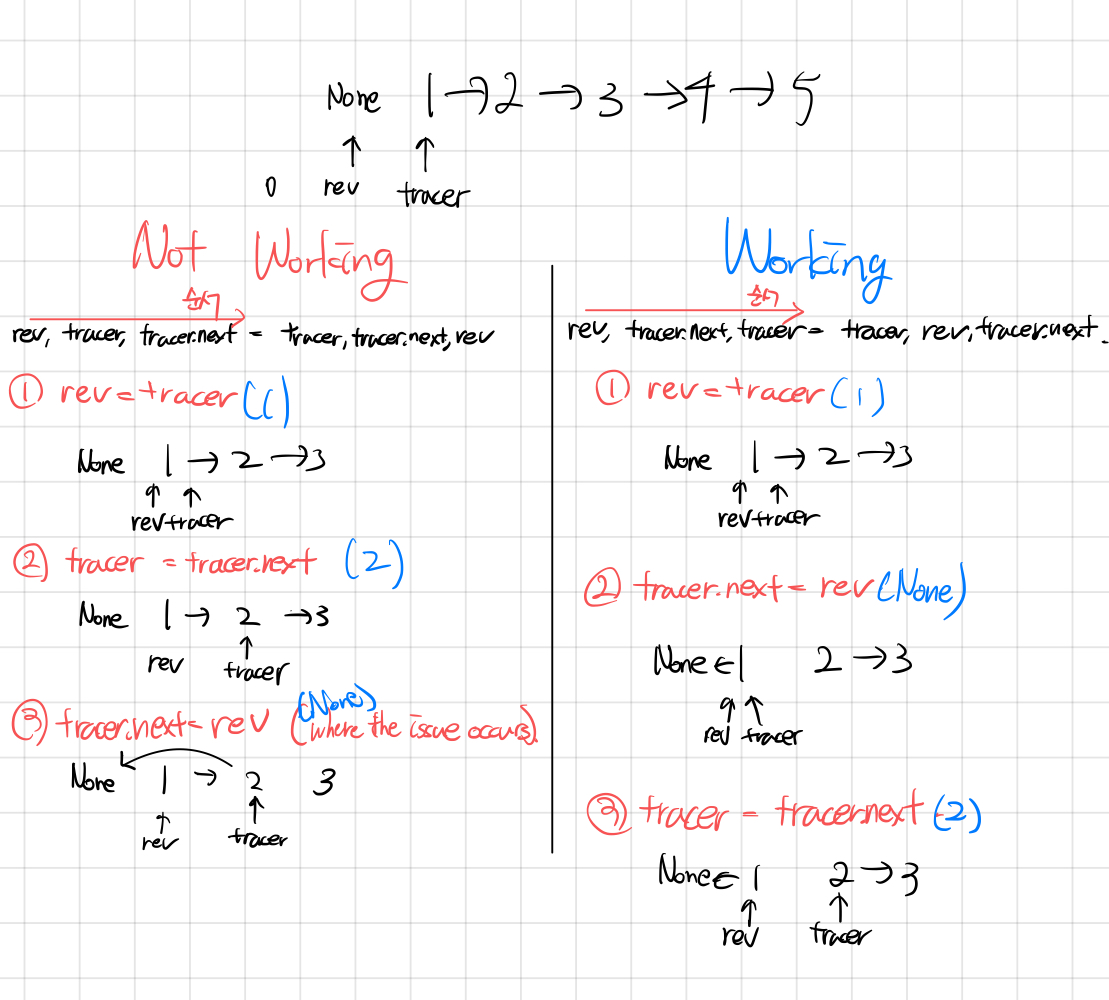 None 1→2→3→4→5
↑ ↑
0 rev tracer
Not Working
순서
rev, tracer, tracer.next = tracer, tracer.next, rev
① rev=tracer(1)
None 1→2→3
↑ ↑
rev tracer
② tracer = tracer.next (2)
None 1→ 2 →3
↑
rev tracer
③ tracer.next=rev (None)
(where the issue occurs)
None 1 → 2 3
↑ ↑
rev tracer
Working
순서
rev, tracer.next, tracer= tracer, rev, tracer.next.
① rev=tracer(1)
None 1→2→3
↑ ↑
rev tracer
② tracer.next=rev(None)
None←1 2→3
↑ ↑
rev tracer
③ tracer = tracer.next (2)
None←1 2→3
↑ ↑
rev tracer